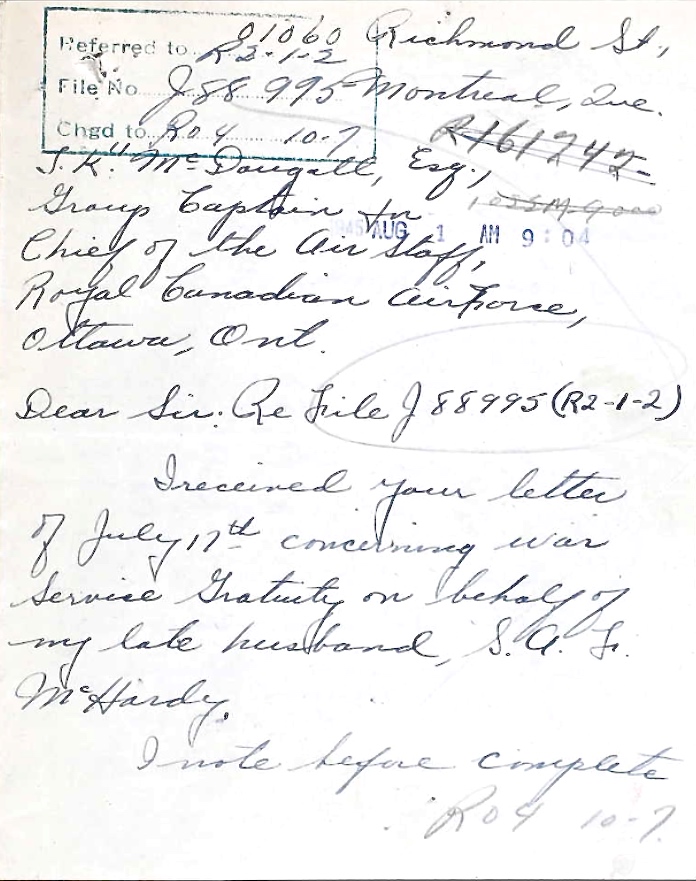 01060 Richmond St,
Referred to R2-1-2
File No. J88995 Montreal, Que.
Chgd to R04 10-7
R161242
S.K. McDougall, Esq.,
Group Captain for
1945 AUG 1 AM 9:04
Chief of the Air Staff,
Royal Canadian AirForce,
Ottawa, Ont.
Dear Sir: Re File J88995 (R2-1-2)
I received your letter
of July 17th concerning war
Service Gratuity on behalf of
my late husband, S. A. F.
McHardy.
I note before complete
R04 10-7